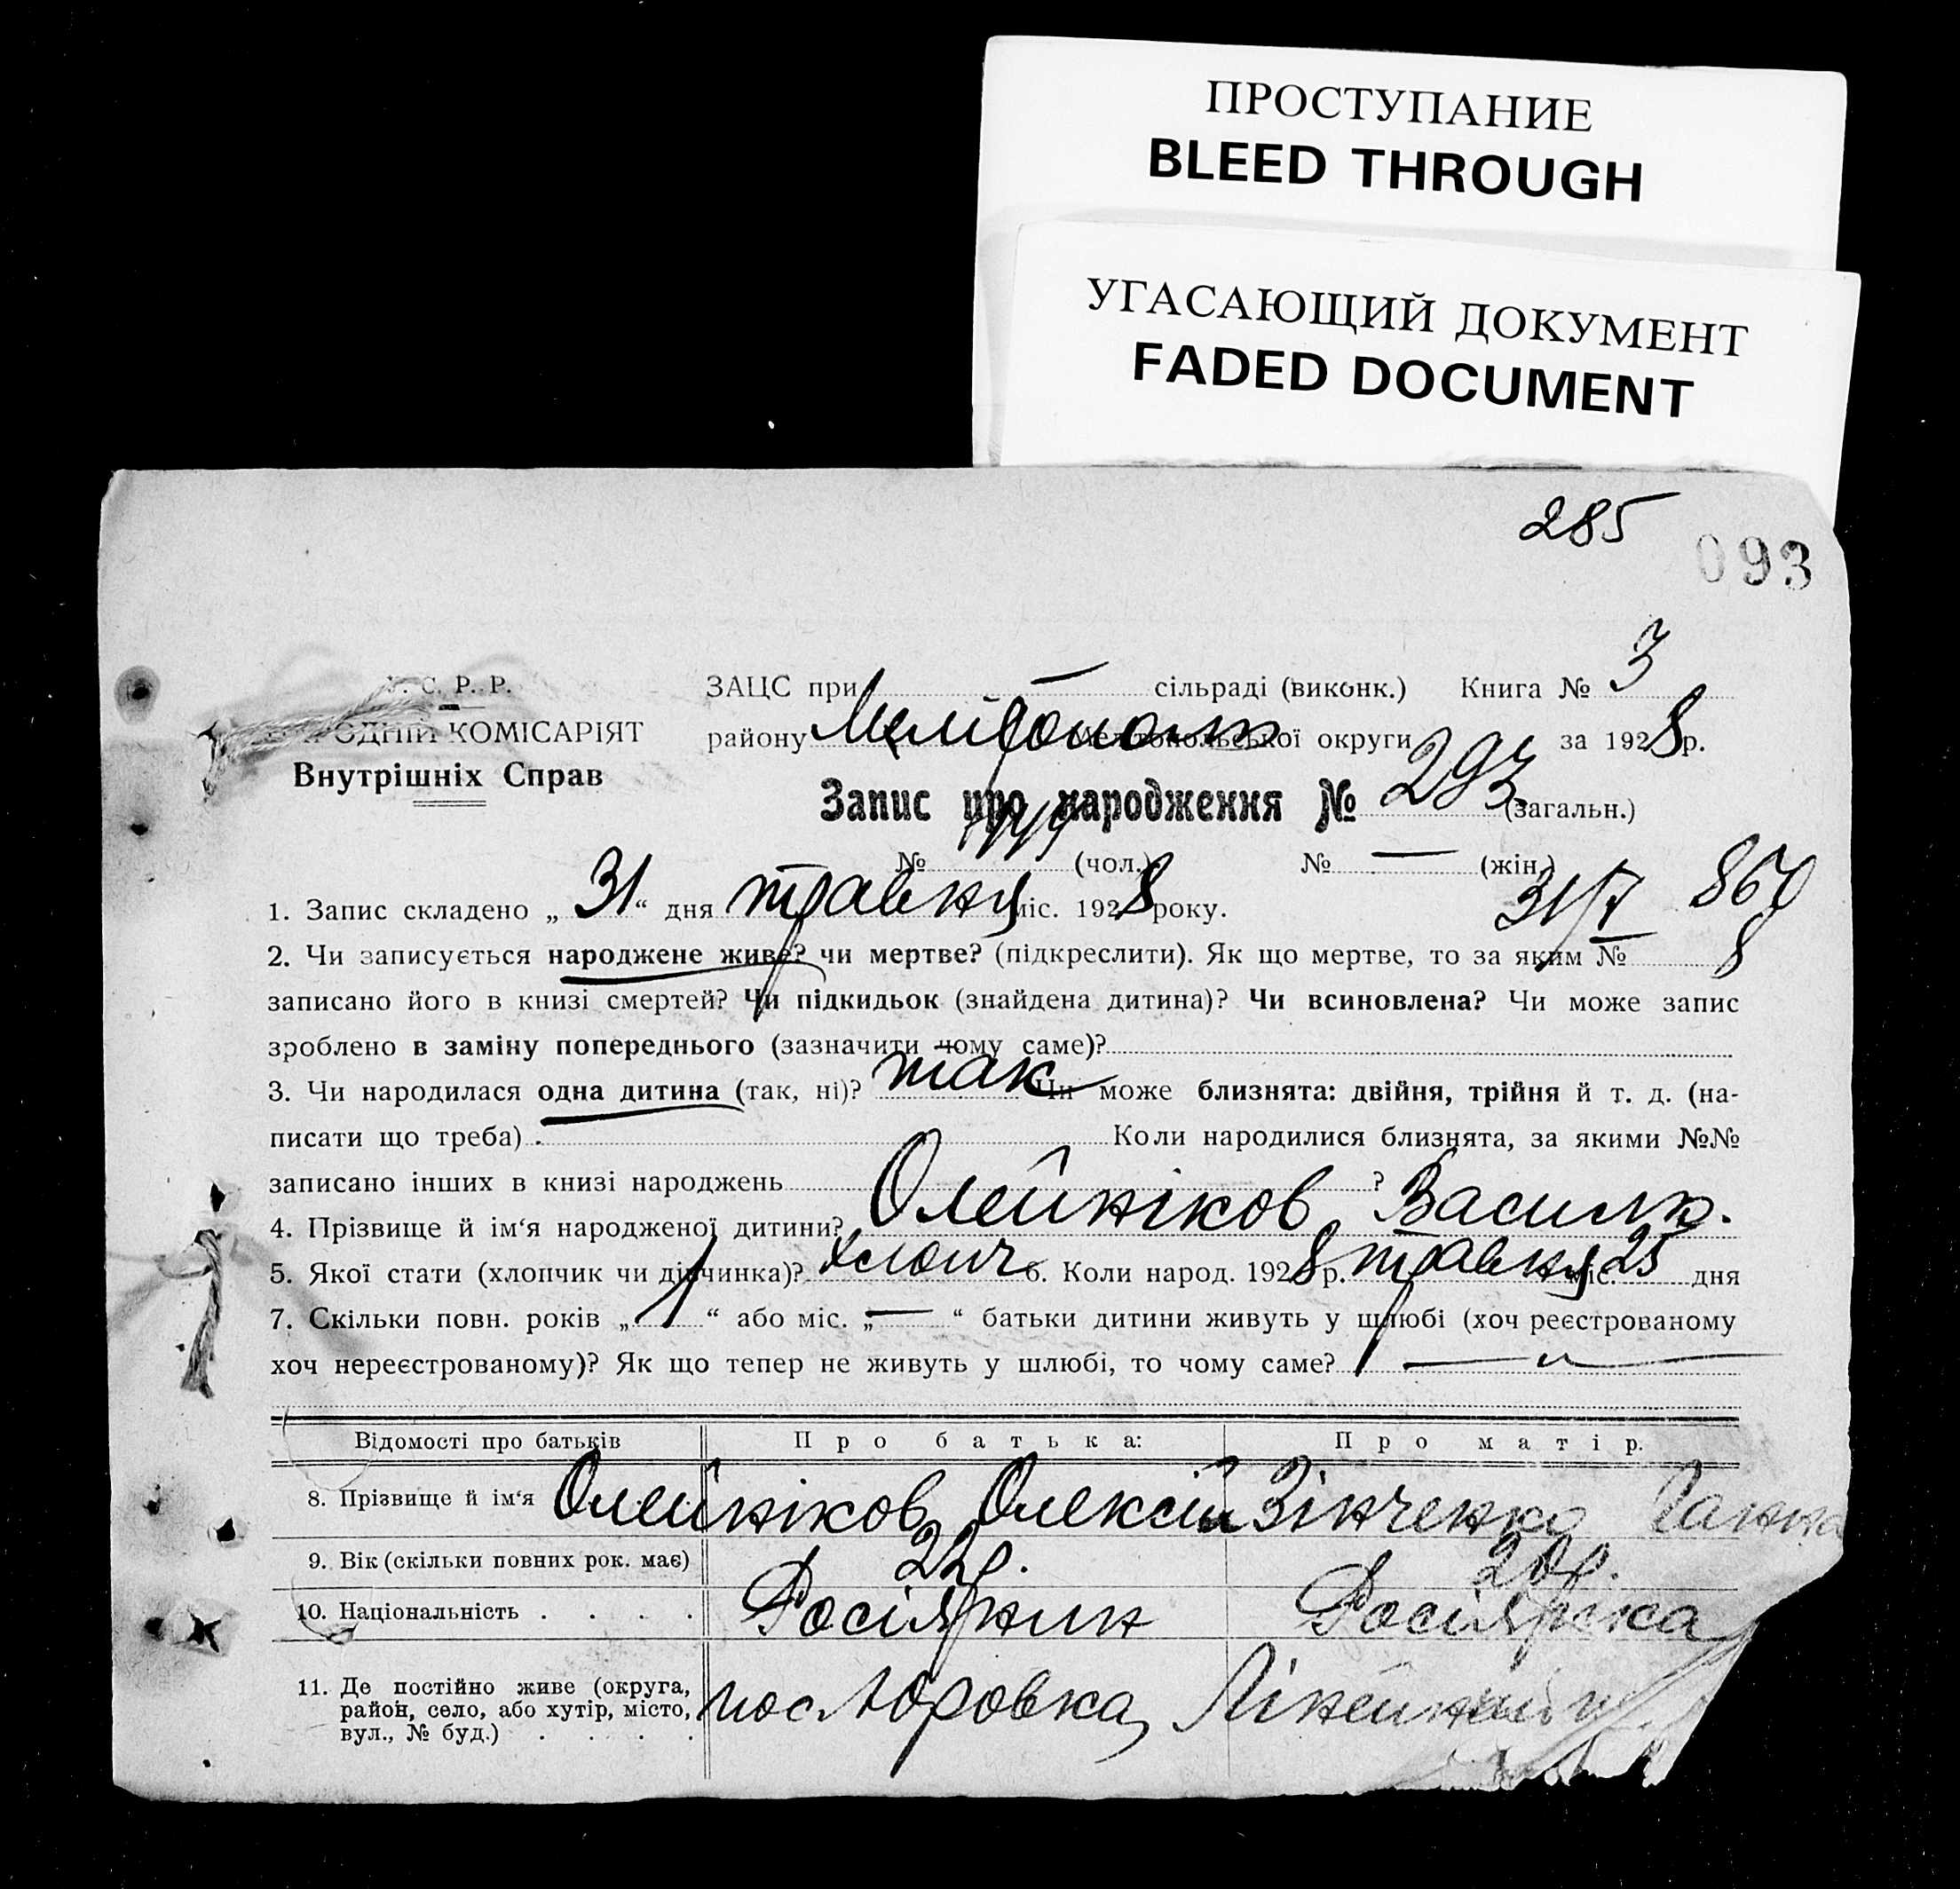 ПРОСТУПАНИЕ
BLEED THROUGH
УГАСАЮЩИЙ ДОКУМЕНТ
FADED DOCUMENT
285
093
С. Р. Р.
КОМІСАРІЯТ
Внутрішніх Справ
ЗАЦС при сільраді (виконк.) Книга № 3
району Мелітополь Мелітопольської округи за 1928 р.
Запис про народження № 293 (загальн.)
№ (чол.) № — (жін.)
1. Запис складено „31“ дня травня міс. 1928 року.
2. Чи записується народжене живе? чи мертве? (підкреслити). Як що мертве, то за яким №
записано його в книзі смертей? Чи підкидьок (знайдена дитина)? Чи всиновлена? Чи може запис
зроблено в заміну попереднього (зазначити чому саме)?
3. Чи народилася одна дитина (так, ні)? так Чи може близнята: двійня, трійня й т. д. (на-
писати що треба) Коли народилися близнята, за якими №№
записано інших в книзі народжень ?
4. Прізвище й ім‘я народженої дитини? Олейніков Василь.
5. Якої стати (хлопчик чи дівчинка)? хлопч 6. Коли народ. 1928 р. травня міс. 25 дня
7. Скільки повн. років „1“ або міс. „—“ батьки дитини живуть у шлюбі (хоч реєстрованому
хоч нереєстрованому)? Як що тепер не живуть у шлюбі, то чому саме?
Відомості про батьків Про батька: Про матір.
8. Прізвище й ім‘я Олейніков Олексій Зінченко Ганна
9. Вік (скільки повних рок. має) 22 р. 20 р.
10. Національність . . . . Росіянин Росіянка
11. Де постійно живе (округа,
район, село, або хутір, місто,
вул., № буд.) . . . . пос Юровка, Лінейний